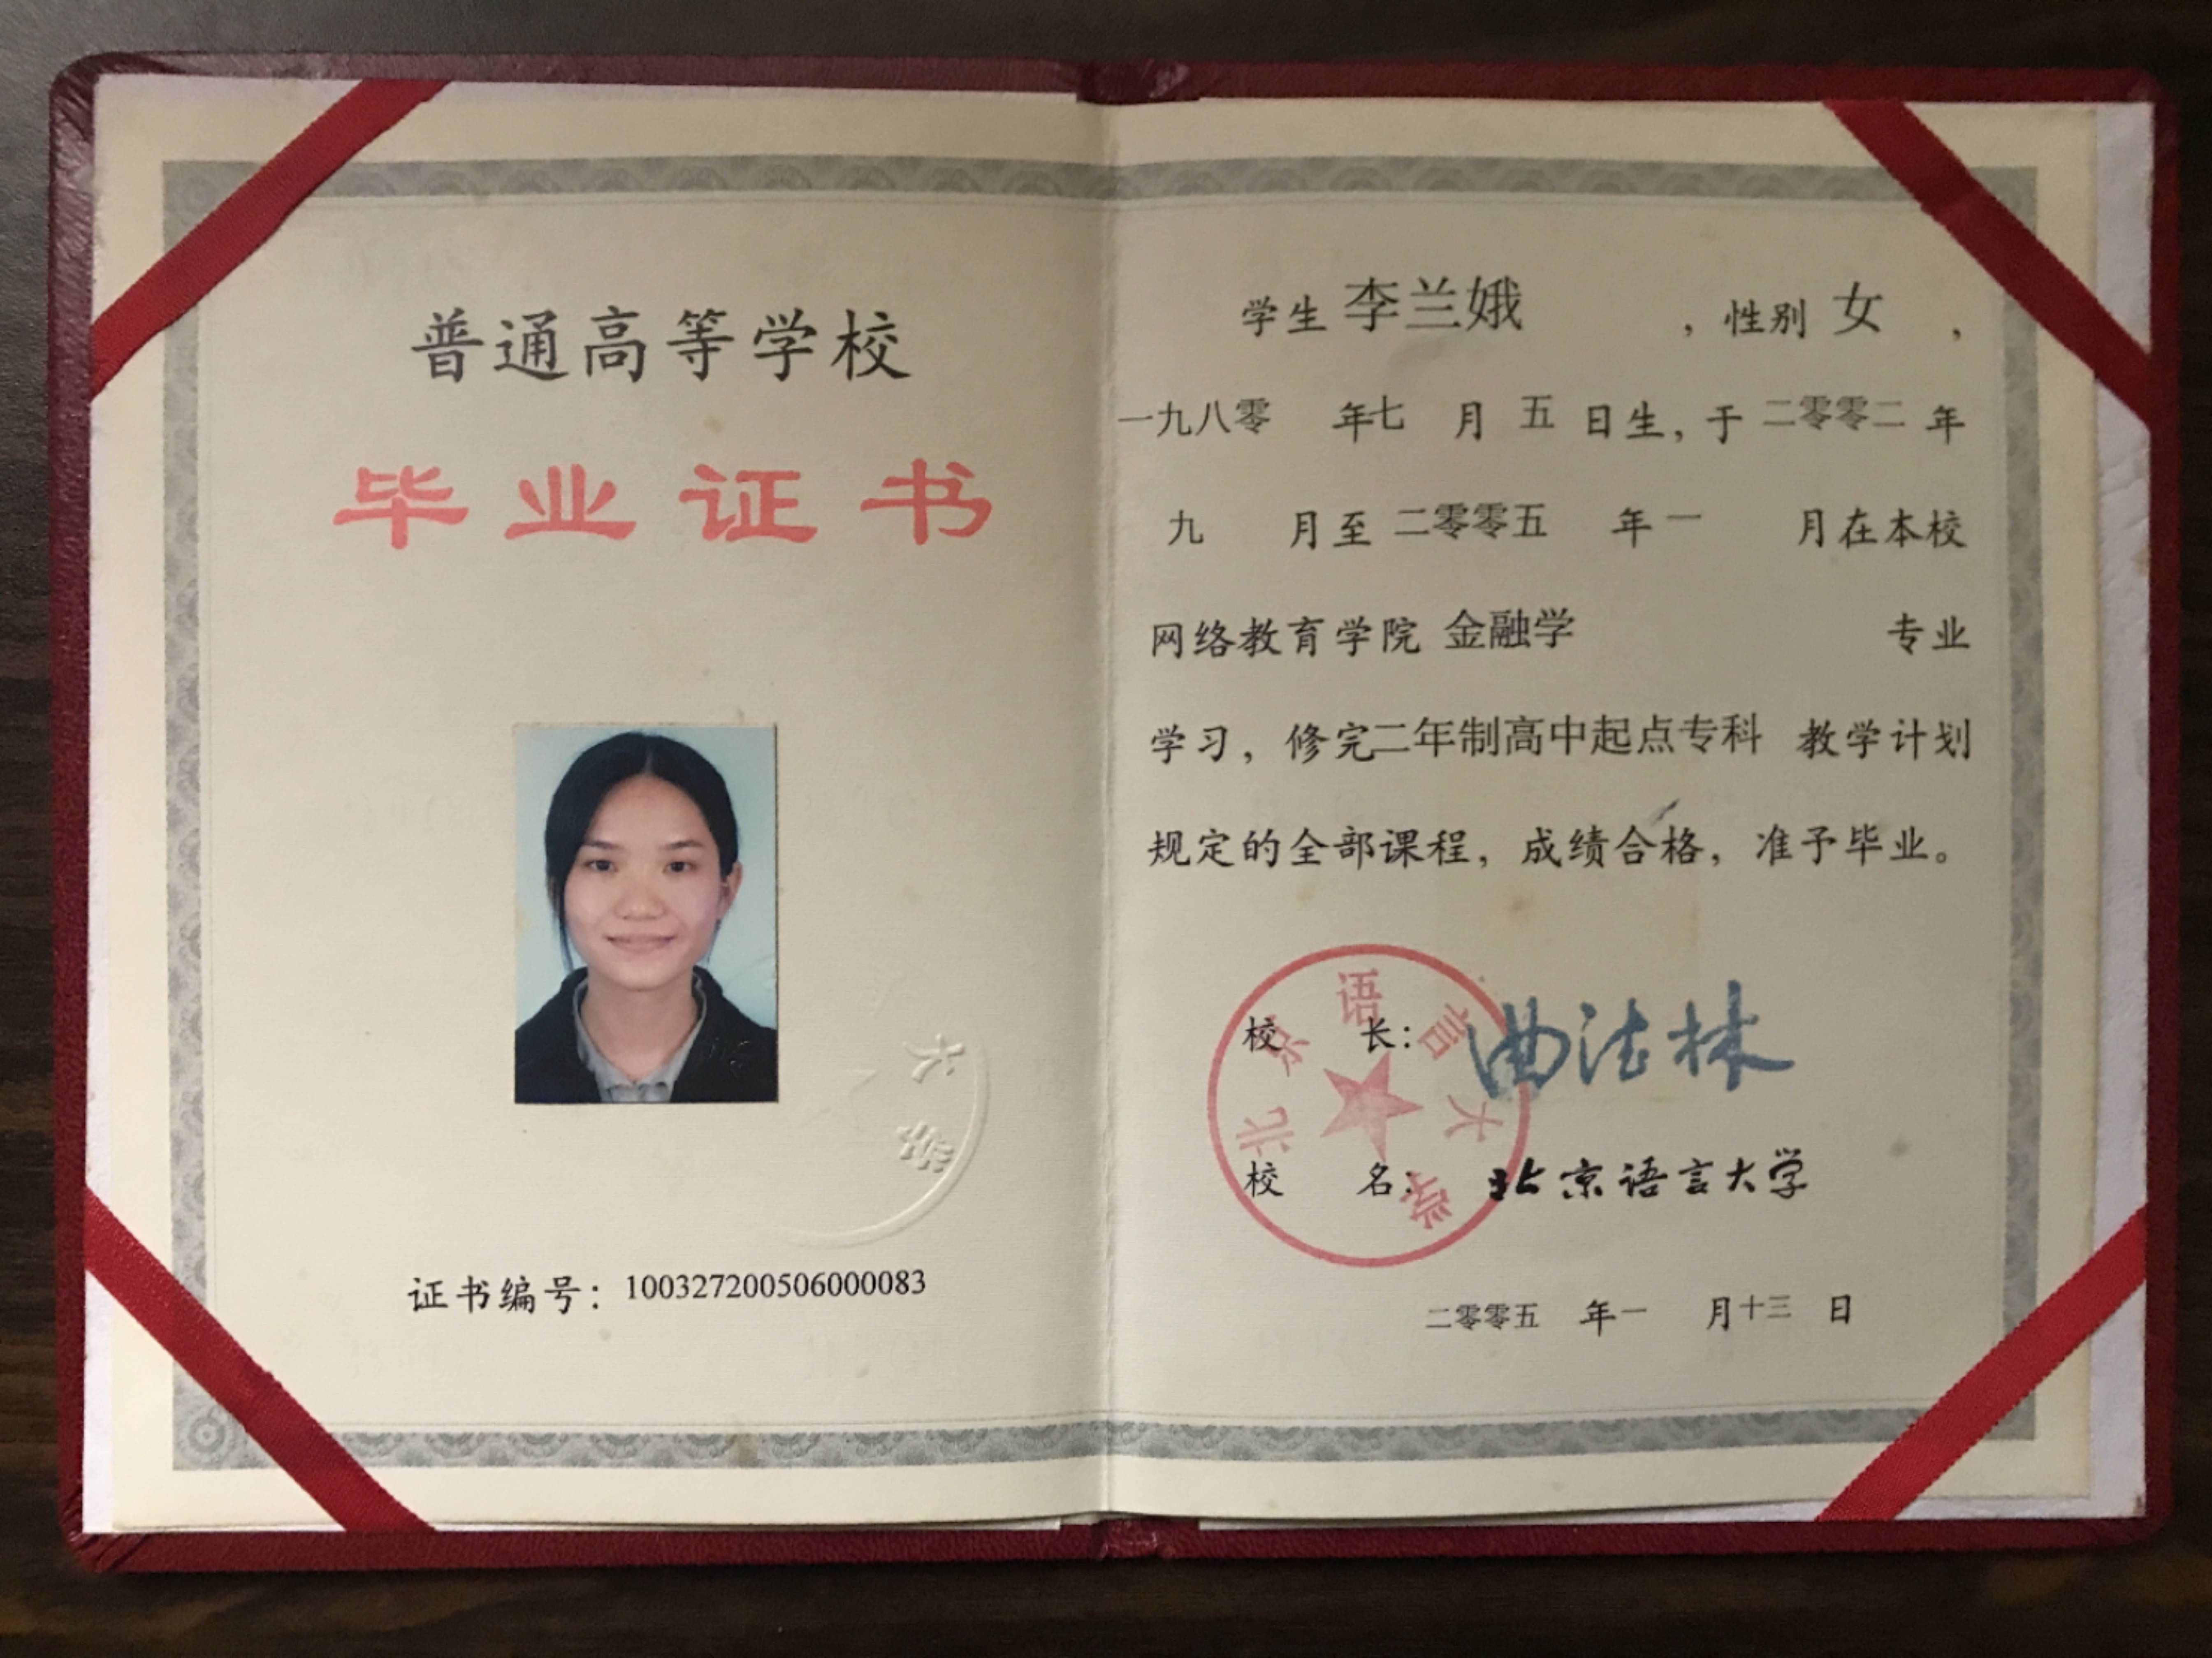 普通高等学校
毕业证书
大学
证书编号：100327200506000083
学生 李兰娥 ，性别 女 ，
一九八零 年七 月 五 日生，于 二零零二 年
九 月至 二零零五 年一 月在本校
网络教育学院 金融学 专业
学习，修完二年制高中起点专科 教学计划
规定的全部课程，成绩合格，准予毕业。
北京语言大学
校 长：曲法林
校 名：北京语言大学
二零零五 年一 月十三 日